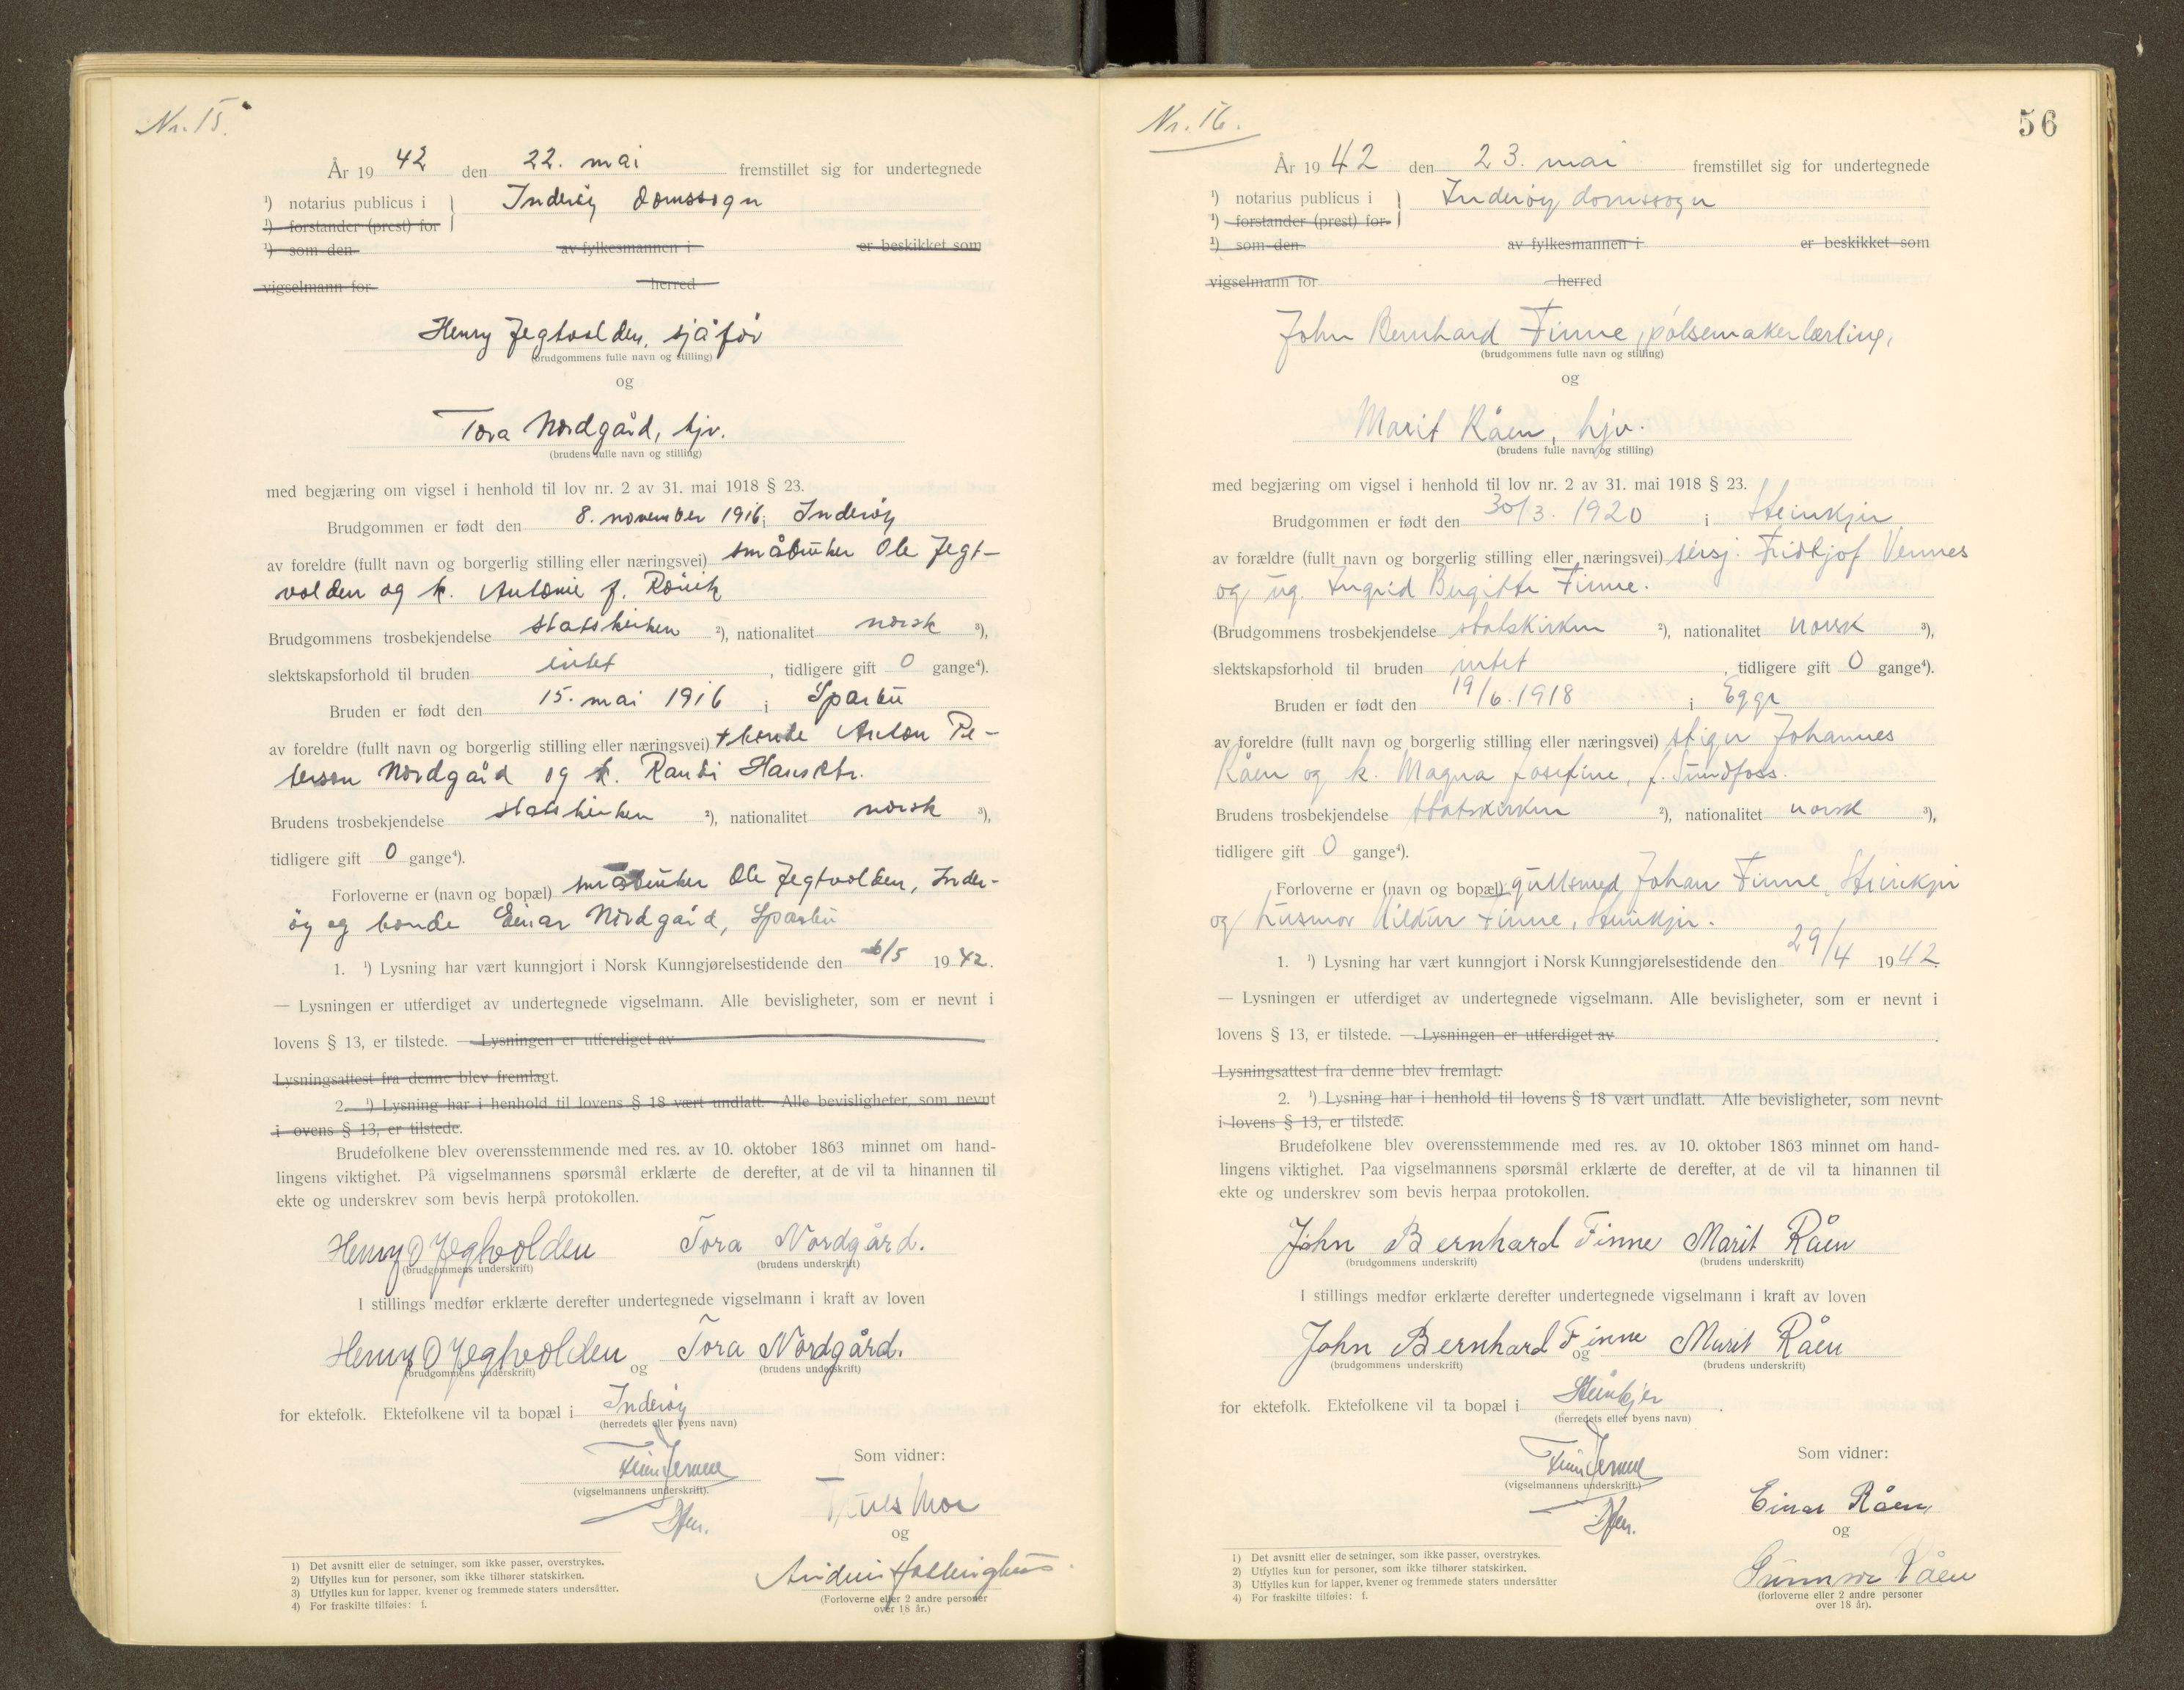 Nr. 15.
År 19 42 den 22. mai fremstillet sig for undertegnede
¹) notarius publicus i } Inderöy domssogn
¹) forstander (prest) for
¹) som den av fylkesmannen i er beskikket som
vigselmann for herred
Henry Jegtvolden, sjåför
(brudgommens fulle navn og stilling)
og
Tora Nordgård, hjv.
(brudens fulle navn og stilling)
med begjæring om vigsel i henhold til lov nr. 2 av 31. mai 1918 § 23.
Brudgommen er født den 8. november 1916 i Inderöy
av foreldre (fullt navn og borgerlig stilling eller næringsvei) småbruker Ole Jegt-
volden og k. Antonie f. Rövik
Brudgommens trosbekjendelse statskirken ²), nationalitet norsk ³),
slektskapsforhold til bruden intet, tidligere gift 0 gange⁴).
Bruden er født den 15. mai 1916 i Sparbu
av foreldre (fullt navn og borgerlig stilling eller næringsvei) + bonde Anton Pe-
terson Nordgård og k. Randi Hansdtr.
Brudens trosbekjendelse statskirken ²), nationalitet norsk ³),
tidligere gift 0 gange⁴).
Forloverne er (navn og bopæl) småbruker Ole Jegtvolden, Inder-
öy og bonde Einar Nordgård, Sparbu
1. ¹) Lysning har vært kunngjort i Norsk Kunngjørelsestidende den 6/5 1942.
— Lysningen er utferdiget av undertegnede vigselmann. Alle bevisligheter, som er nevnt i
lovens § 13, er tilstede. — Lysningen er utferdiget av
Lysningsattest fra denne blev fremlagt.
2. ¹) Lysning har i henhold til lovens § 18 vært undlatt. Alle bevisligheter, som nevnt
i ovens § 13, er tilstede.
Brudefolkene blev overensstemmende med res. av 10. oktober 1863 minnet om hand-
lingens viktighet. På vigselmannens spørsmål erklærte de derefter, at de vil ta hinannen til
ekte og underskrev som bevis herpå protokollen.
Henry O Jegtvolden Tora Nordgård.
(brudgommens underskrift) (brudens underskrift)
I stillings medfør erklærte derefter undertegnede vigselmann i kraft av loven
Henry O Jegtvolden og Tora Nordgård.
(brudgommens underskrift) (brudens underskrift)
for ektefolk. Ektefolkene vil ta bopæl i Inderöy
(herredets eller byens navn)
Som vidner:
(vigselmannens underskrift).
Moe
og
(Forloverne eller 2 andre personer
over 18 år.)
1) Det avsnitt eller de setninger, som ikke passer, overstrykes.
2) Utfylles kun for personer, som ikke tilhører statskirken.
3) Utfylles kun for lapper, kvener og fremmede staters undersåtter.
4) For fraskilte tilføies: f.
Nr. 16.
56
År 19 42 den 23. mai fremstillet sig for undertegnede
¹) notarius publicus i } Inderöy domssogn
¹) forstander (prest) for
¹) som den av fylkesmannen i er beskikket som
vigselmann for herred
John Bernhard Finne, pölsemakerlærling,
(brudgommens fulle navn og stilling)
og
Marit Råen, hjv.
(brudens fulle navn og stilling)
med begjæring om vigsel i henhold til lov nr. 2 av 31. mai 1918 § 23.
Brudgommen er født den 30/3. 1920 i Steinkjer
av forældre (fullt navn og borgerlig stilling eller næringsvei) sersj. Fridtjof Vennes
og ug. Ingrid Birgitte Finne.
(Brudgommens trosbekjendelse statskirken ²), nationalitet norsk ³),
slektskapsforhold til bruden intet, tidligere gift 0 gange⁴).
Bruden er født den 19/6. 1918 i Egge
av foreldre (fullt navn og borgerlig stilling eller næringsvei) stiger Johannes
Råen og k. Magna Josefine, f. Sundfoss.
Brudens trosbekjendelse statskirken ²), nationalitet norsk ³),
tidligere gift 0 gange⁴).
Forloverne er (navn og bopæl) gullsmed Johan Finne, Steinkjer
og husmor Hildur Finne, Steinkjer.
1. ¹) Lysning har vært kunngjort i Norsk Kunngjørelsestidende den 29/4 1942.
— Lysningen er utferdiget av undertegnede vigselmann. Alle bevisligheter, som er nevnt i
lovens § 13, er tilstede. — Lysningen er utferdiget av .
Lysningsattest fra denne blev fremlagt.
2. ¹) Lysning har i henhold til lovens § 18 vært undlatt. Alle bevisligheter, som nevnt
i lovens § 13, er tilstede.
Brudefolkene blev overensstemmende med res. av 10. oktober 1863 minnet om hand-
lingens viktighet. Paa vigselmannens spørsmål erklærte de derefter, at de vil ta hinannen til
ekte og underskrev som bevis herpaa protokollen.
John Bernhard Finne Marit Råen
(brudgommens underskrift) (brudens underskrift)
I stillings medfør erklærte derefter undertegnede vigselmann i kraft av loven
John Bernhard Finne og Marit Råen
(brudgommens underskrift) (brudens underskrift)
for ektefolk. Ektefolkene vil ta bopæl i Steinkjer .
(herredets eller byens navn)
Som vidner:
(vigselmannens underskrift.)
Einar Råen
og
Gunnvor Råen
(forloverne eller 2 andre personer
over 18 år).
1) Det avsnitt eller de setninger, som ikke passer, overstrykes.
2) Utfylles kun for personer, som ikke tilhører statskirken.
3) Utfylles kun for lapper, kvener og fremmede staters undersåtter
4) For fraskilte tilføies: f.